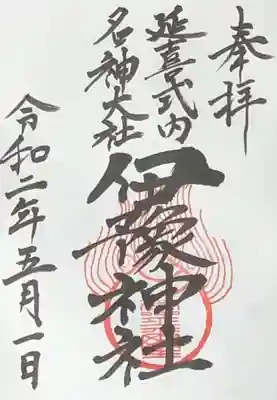 奉拝
延喜式内
名神大社
伊豫神社
令和二年五月一日